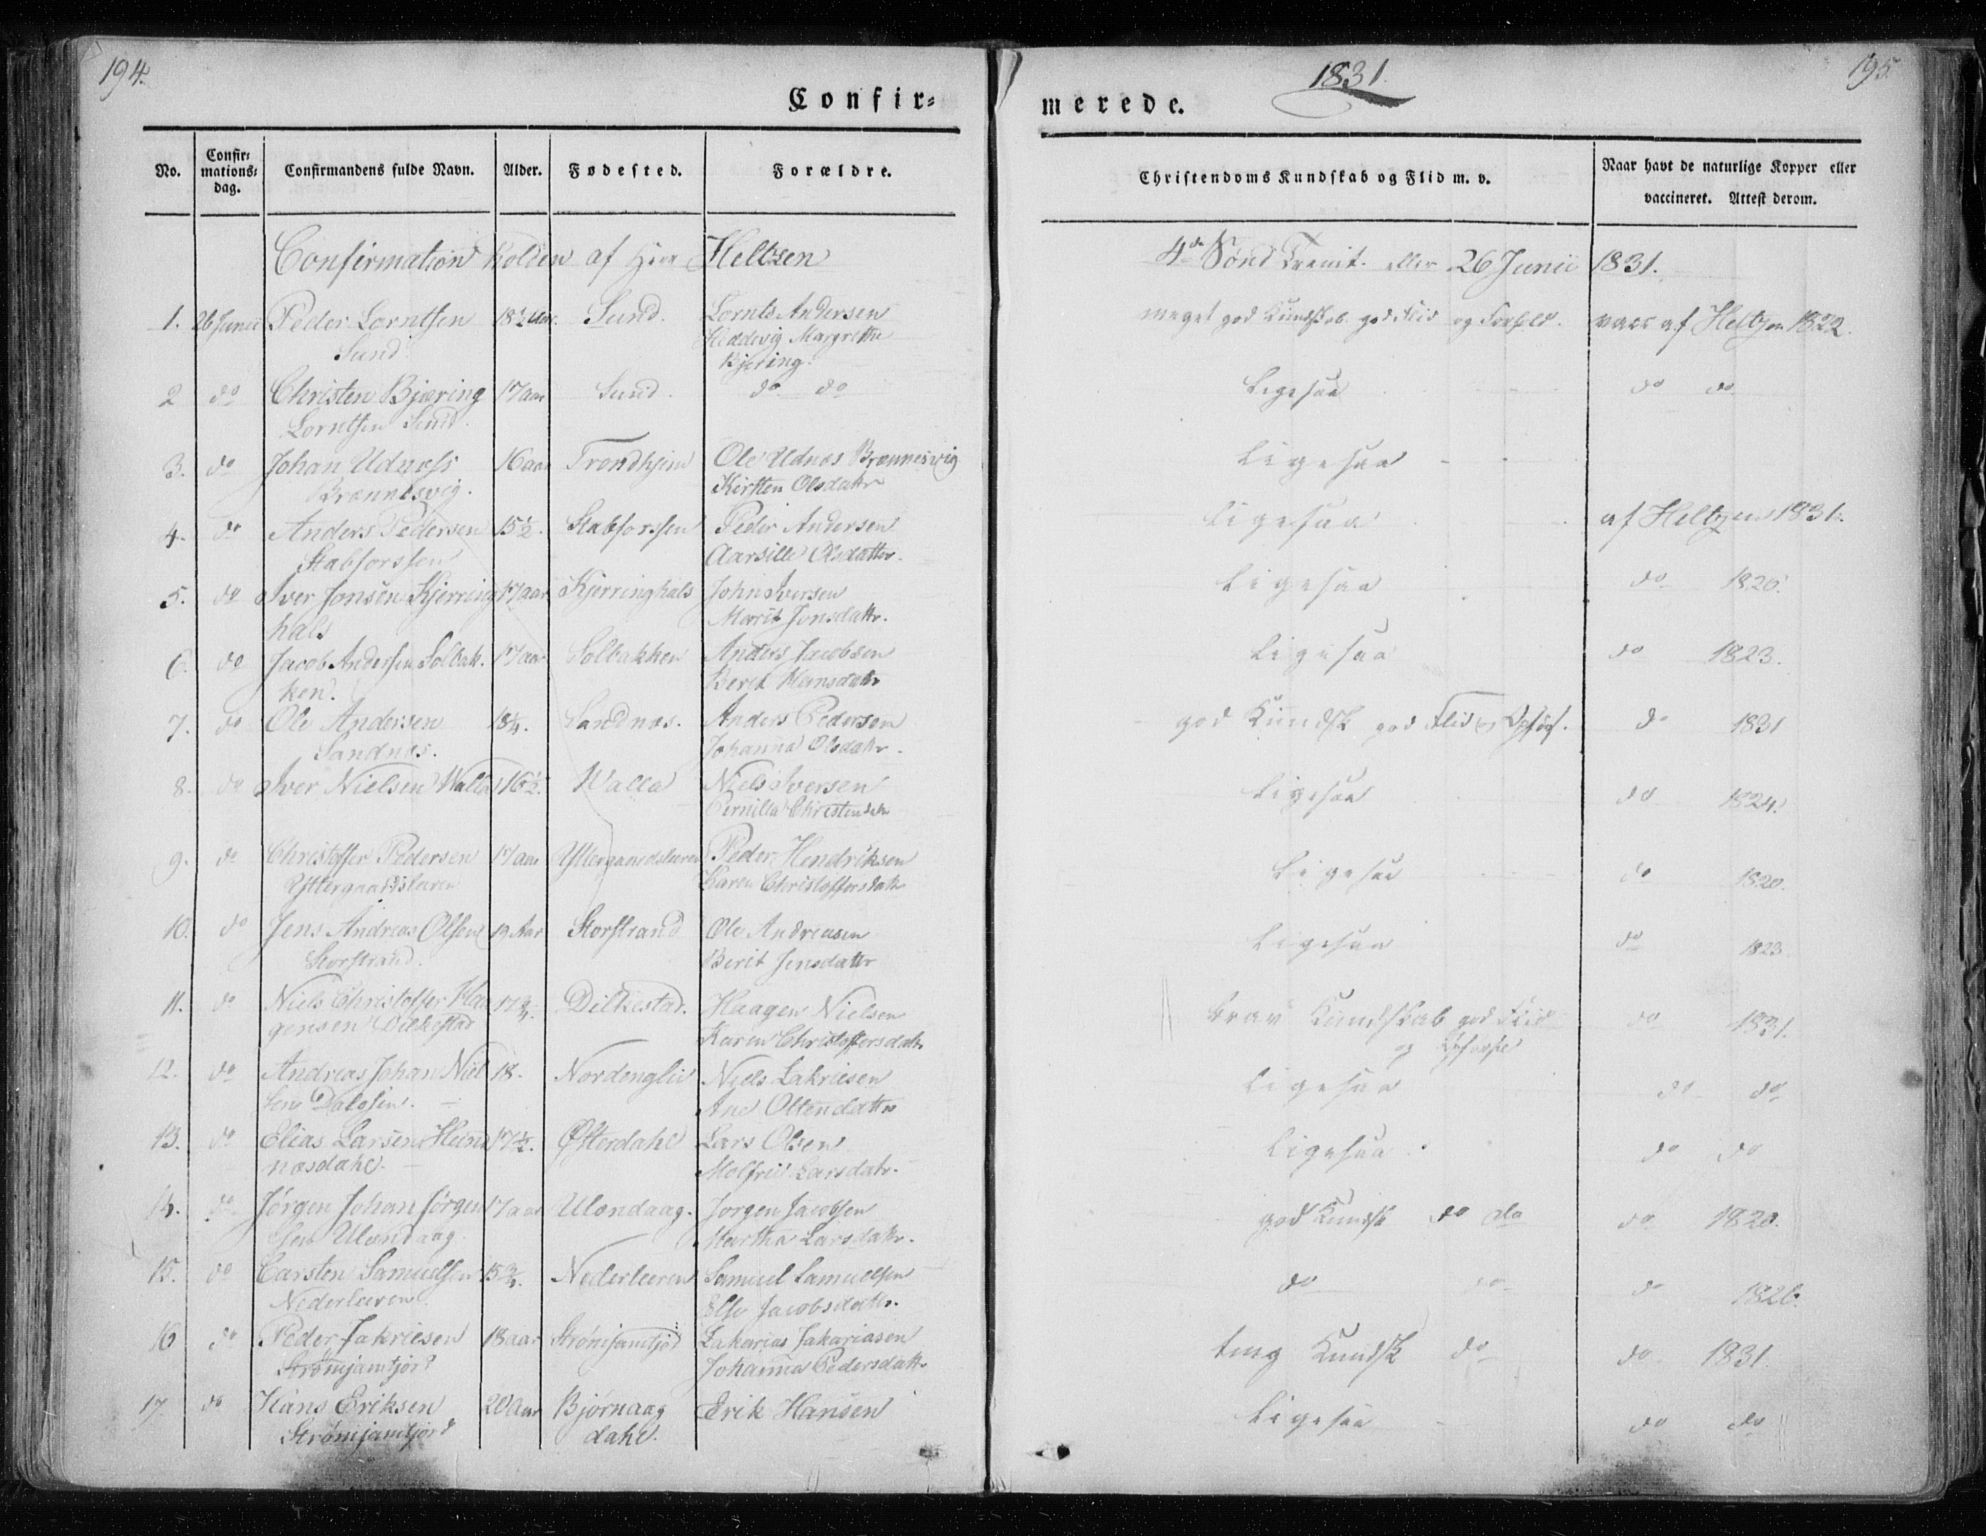 194.
Confir-
No.
Confir-
mations-
dag.
Confirmandens fulde Navn.
Alder.
Fødested.
Forældre.
Confirmation holden af Herr Heltzen
1. 26 Junii Peder Lorntsen 18½ Aar. Sund. Lornts Andersen
Sund Heddevig Margrethe
Bjering.
2 do Christen Bjering 17 aar Sund. do do
Lorntsen Sund.
3. do Johan Udnæss 16 aar Trondhjem Ole Udnæs Brønnesvig
Brønnesvig. Kirsten Olsdattr
4. do Anders Pedersen 15½. Stabforssen Peder Andersen
Stabforssen Aarsille Olsdatter.
5. do Iver Jonsen Kjerring 17 aar Kjerringhals John Iversen
hals Marit Jonsdattr.
6. do Jacob Andersen Solbak- 17 aar Solbakken Anders Jacobsen
ken. Berit Hansdattr
7. do Ole Andersen 18¼. Sandnæs. Anders Pedersen
Sandnæs. Johanna Olsdattr.
8. do Iver Nielsen Walla 16½. Walla Niels Iversen
Pernilla Christensdtr
9. do Christoffer Pedersen 17 aar Yttergaardsleeren Peder Hendriksen
Yttergaardsleeren Karen Christoffersdatr
10. do Jens Andreas Olsen 19 Aar Storstrand Ole Andreasen
Storstrand. Berit Jensdattr
11. do Niels Christoffer Haa 17¾. Dilkestad. Haagen Nielsen
gensen Dilkestad Karen Christoffersdatr
12. do Andreas Johan Niel 18. Nordenglie Niels Zakriesen
sen Dalosen. Ane Ottendattr
13. do Elias Larsen Hem 17½. Østendahl Lars Olsen
næsdahl. Molfrie Larsdatr.
14. do Jørgen Johan Jørgen 17 aar Ulondaag. Jørgen Jacobsen
sen Ulondaag. Martha Larsdatr.
15. do Carsten Samuelsen 15¾. Nederleeren Samuel Samuelsen
Nederleeren. Else Jacobsdattr.
16 do Peder Zakriesen 18 aar Strømjamtjord Zakarias Zakariasen
Strømjamtjord Johanna Pedersdattr
17 do Hans Eriksen 20 Aar Bjørnaag Erik Hansen
Strømjamtjord dahl.
1831.
195.
merede.
Christendoms Kundskab og Flid m. v.
Naar havt de naturlige Kopper eller
vaccineret. Attest derom.
4de Sønd Trinit. eller 26 Junii 1831.
meget god Kundskab god Flid og Forhold. vacc af Heltzen 1822.
Ligesaa do do
Ligesaa
Ligesaa af Heltzen 1831.
Ligesaa do 1826.
Ligesaa do 1823.
god Kundsk god Flid og Opførs. do 1831
Ligesaa do 1824.
Ligesaa do 1820.
Ligesaa do 1823
brav Kundskab god Flid do 1831.
og Opførsel
Ligesaa do do
Ligesaa do do
god Kundsk do do do 1820.
do do do 1826.
ting Kundsk do do 1831.
Ligesaa do do